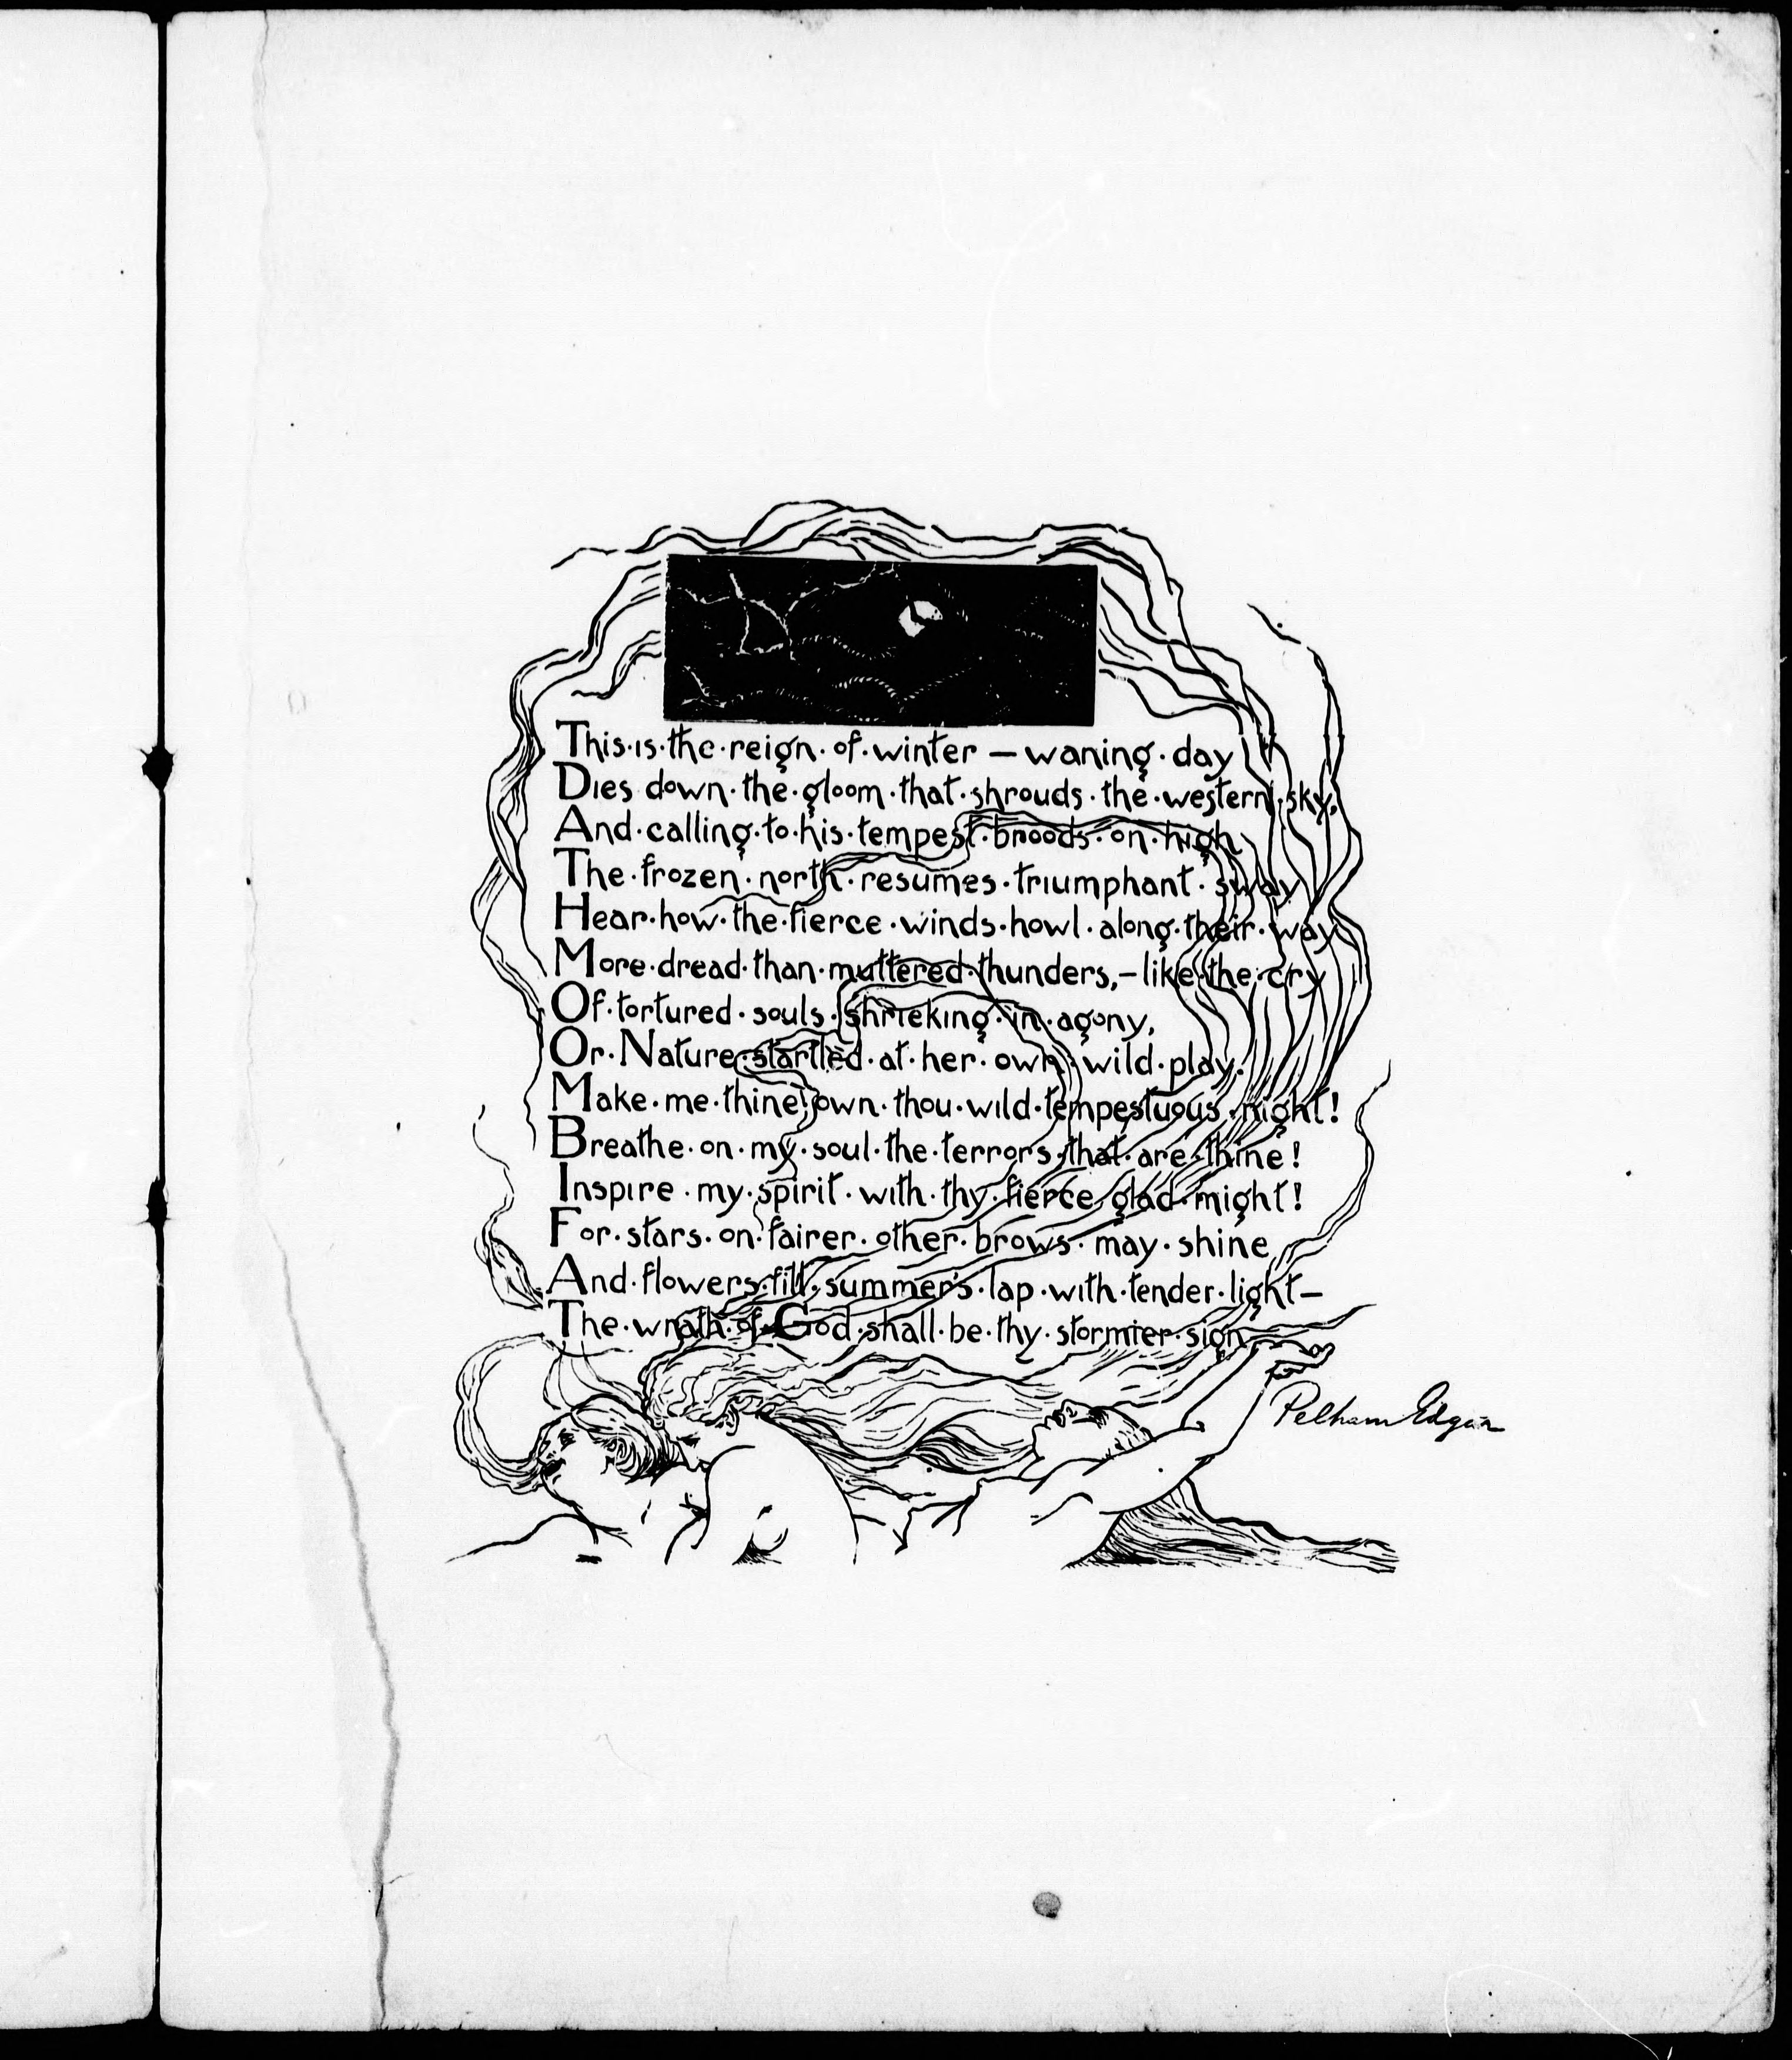 This·is·the·reign·of·winter — waning·day
Dies down·the·gloom·that·shrouds·the·western·sky,
And·calling·to·his·tempest·broods·on·high
The·frozen·north·resumes·triumphant·sway
Hear·how·the·fierce·winds·howl·along·their·way
More·dread·than·muttered·thunders,–like·the·cry
Of·tortured·souls·shrieking·in·agony,
Or·Nature·startled·at·her·own·wild·play.
Make·me·thine·own·thou·wild·tempestuous·night!
Breathe·on·my·soul·the·terrors·that·are·thine!
Inspire·my·spirit·with·thy·fierce·glad·might!
For·stars·on·fairer·other·brows·may·shine
And·flowers·fill·summer's·lap·with·tender·light–
The·wrath·of·God·shall·be·thy·stormier·sign
Pelham Edgar